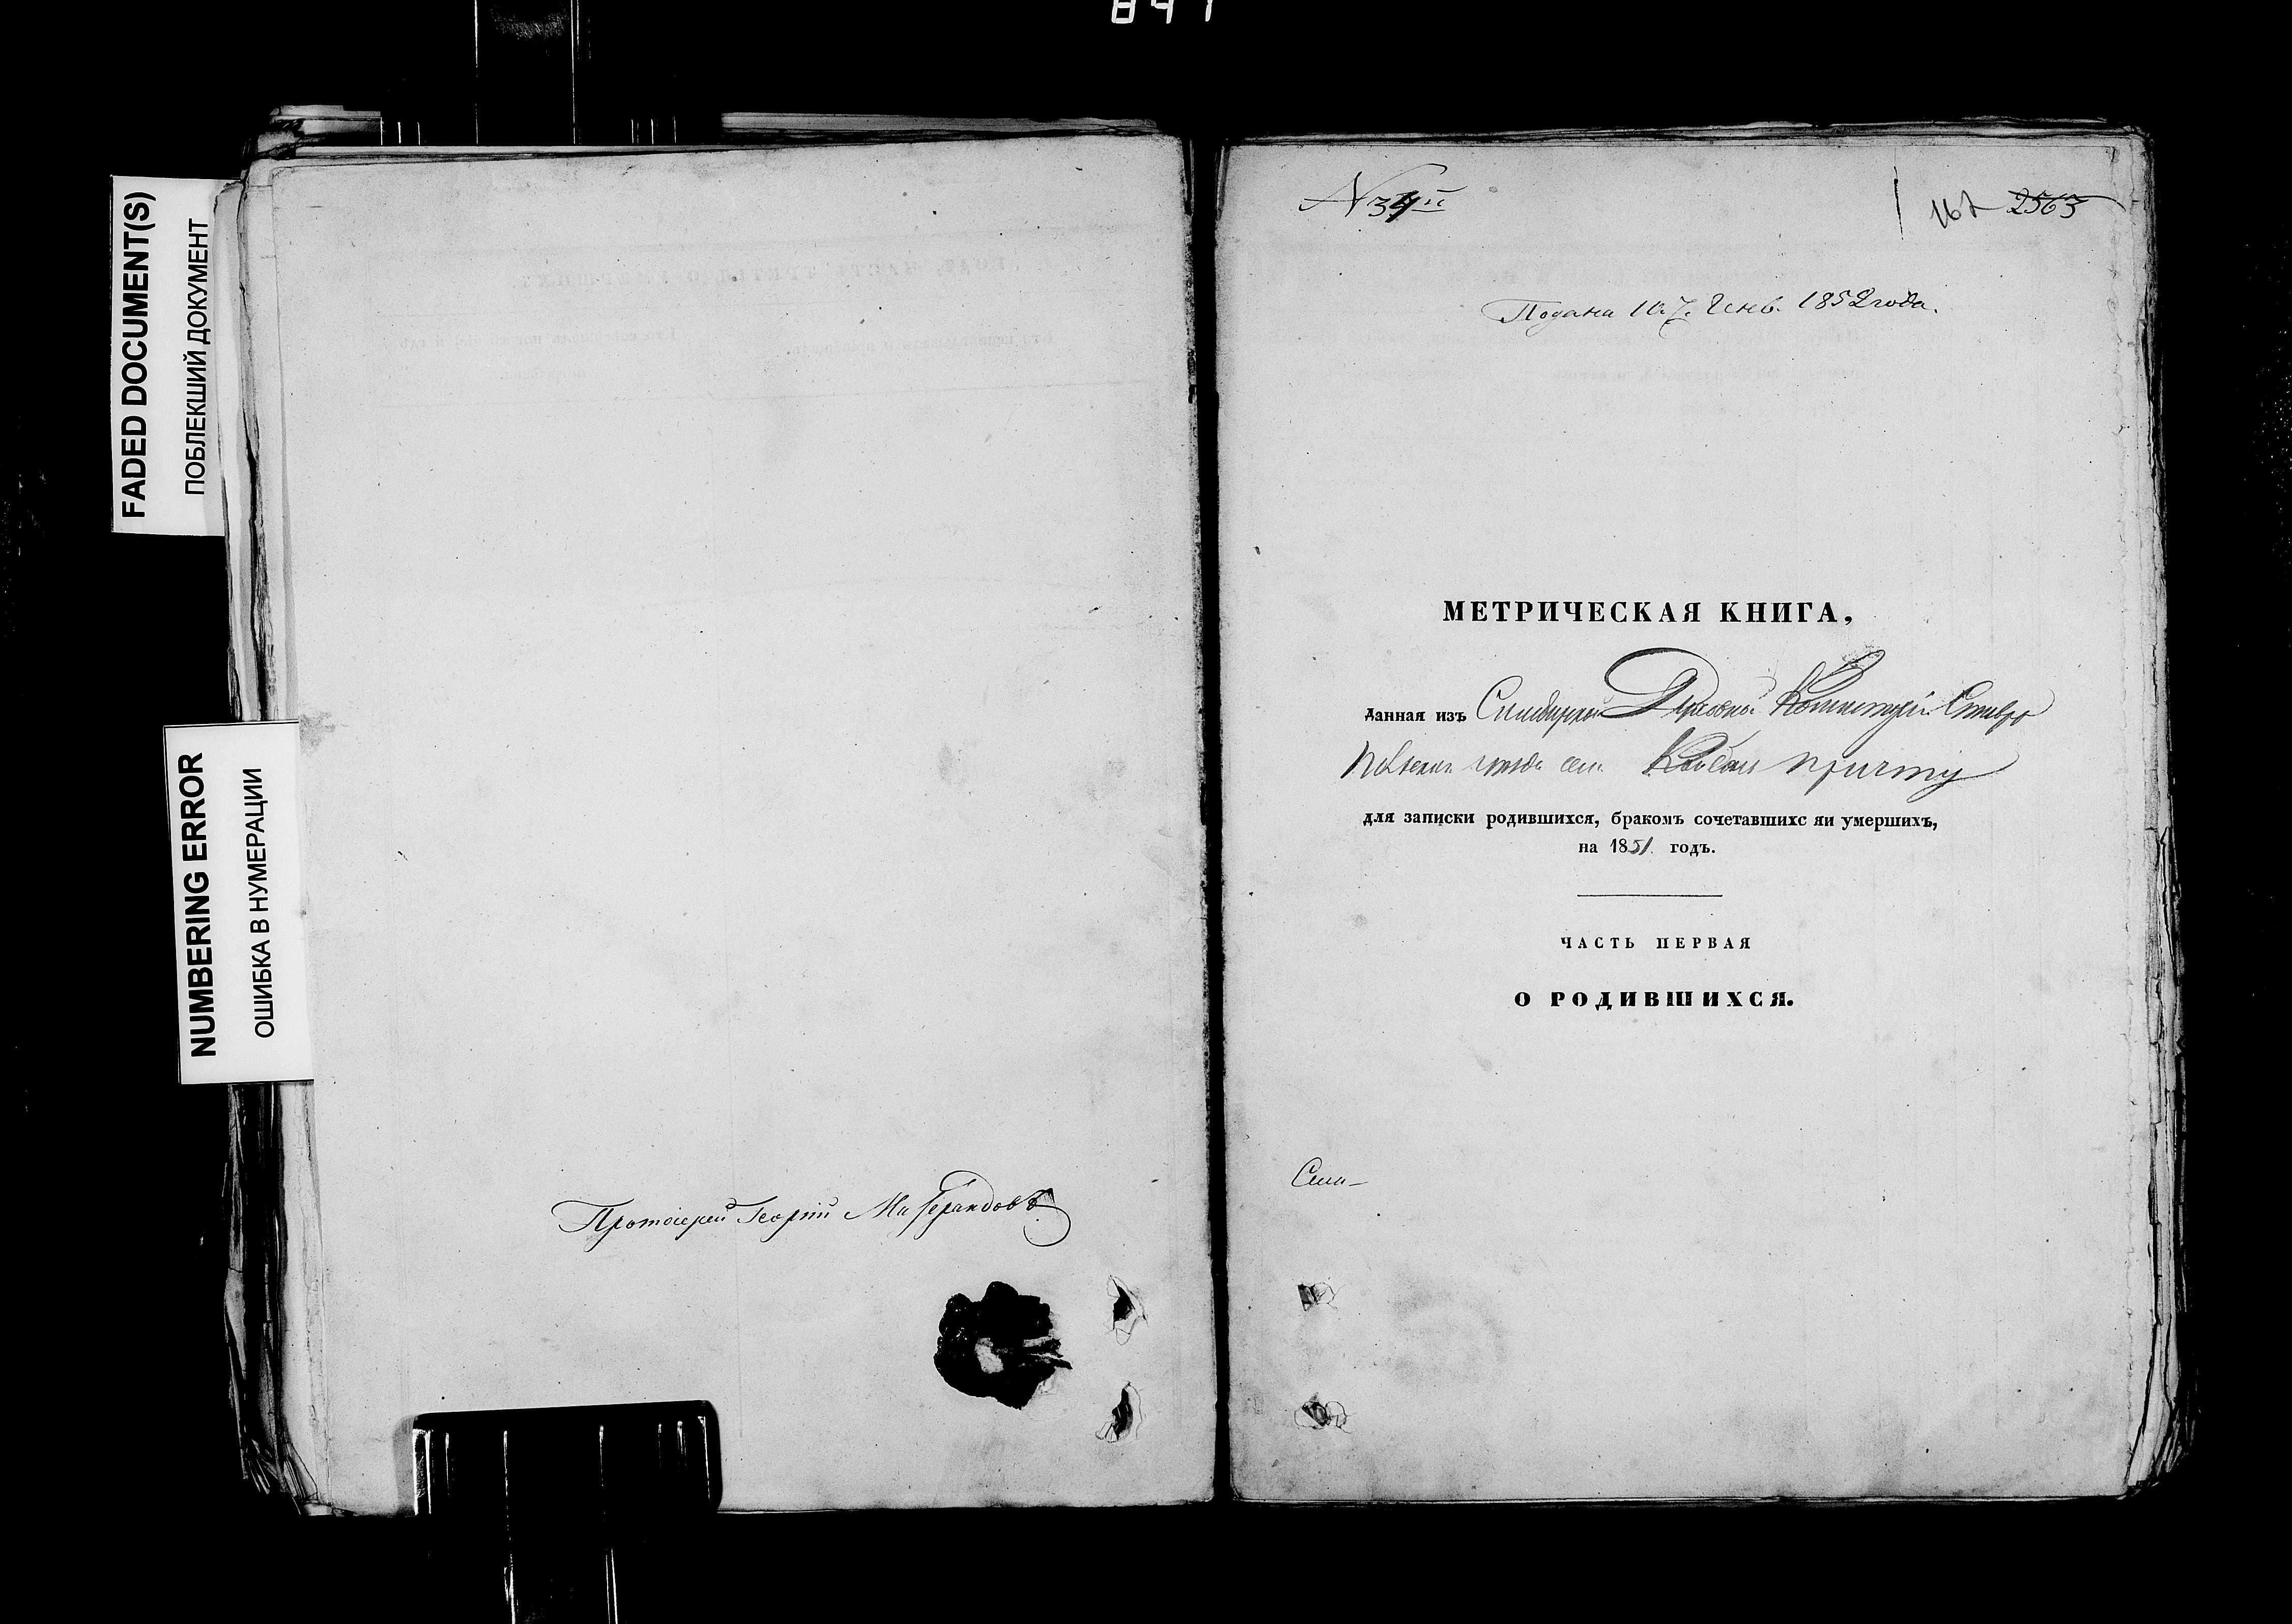 841
FADED DOCUMENT(S)
ПОБЛЕКШИЙ ДОКУМЕНТ
NUMBERING ERROR
ОШИБКА В НУМЕРАЦИИ
Протоіерей Георгій
N 34й
2563
Подана 1852 года.
МЕТРИЧЕСКАЯ КНИГА,
данная изъ Симбирской Духовной Консисторіи Ставро
польскаго уѣзда села причту
для записки родившихся, бракомъ сочетавшихс яи умершихъ,
на 1851 годъ.
ЧАСТЬ ПЕРВАЯ
О РОДИВШИХСЯ.
Сим-